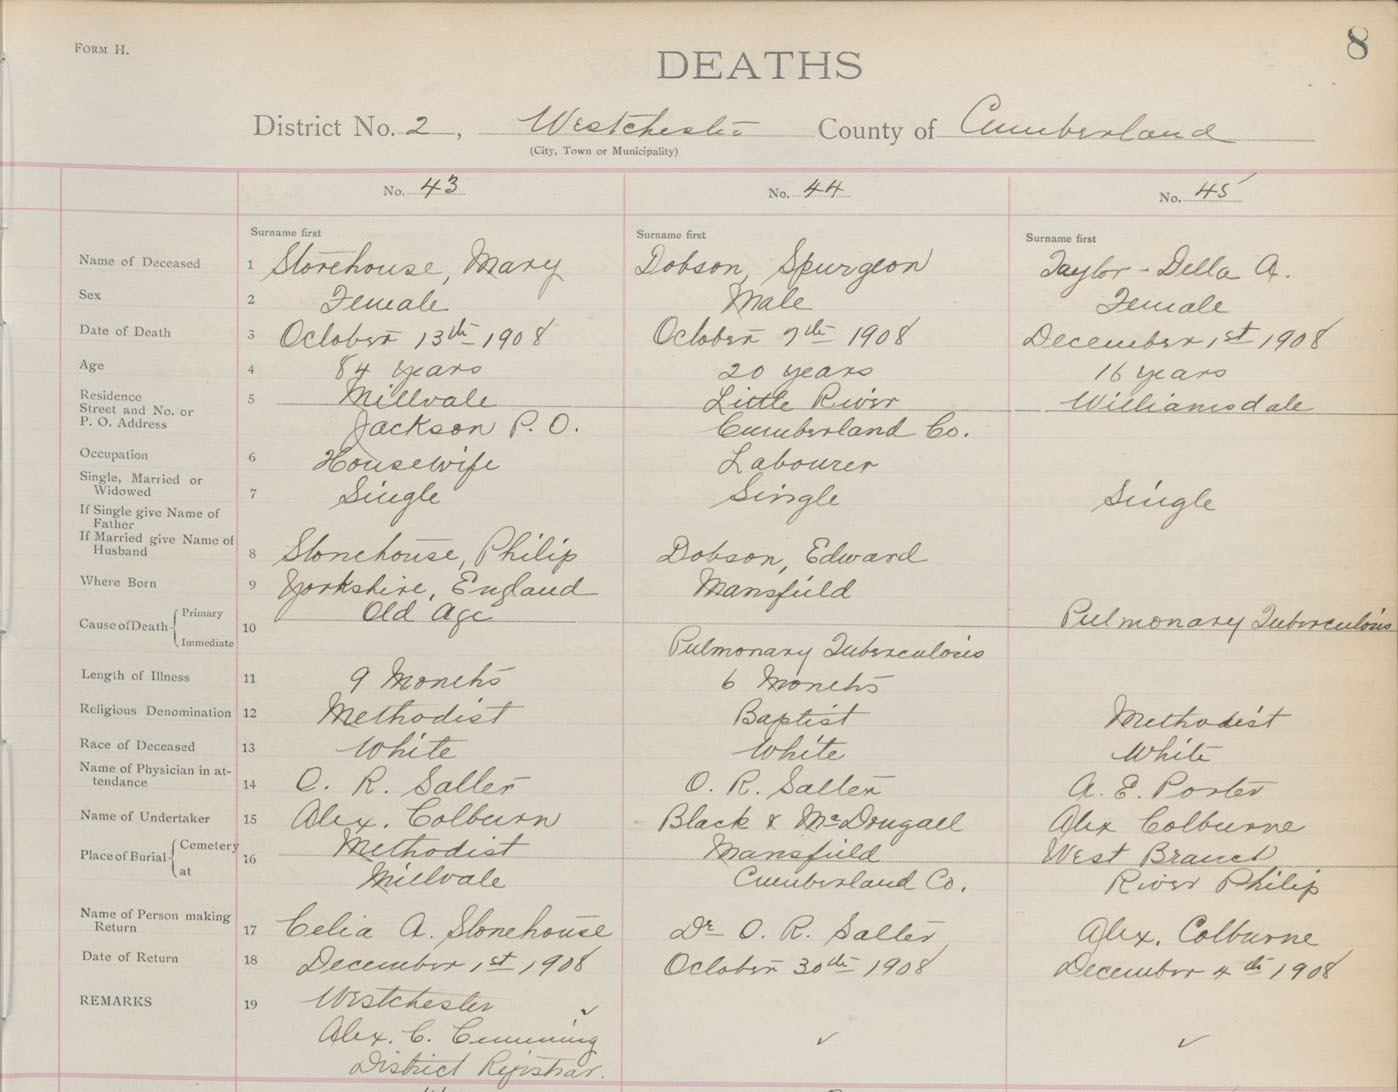 FORM H.
8
DEATHS
District No. 2, Westchester County of Cumberland
(City, Town or Municipality)
No. 43 No. 44 No. 45
Surname first Surname first Surname first
Name of Deceased 1 Stonehouse, Mary Dobson, Spurgeon Taylor - Della A.
Sex 2 Female Male Female
Date of Death 3 October 13th 1908 October 7th 1908 December 1st 1908
Age 4 84 years 20 years 16 years
Residence 5 Millvale Little River Williamsdale
Street and No. or
P. O. Address Jackson P. O. Cumberland Co.
Occupation 6 Housewife Labourer
Single, Married or
Widowed 7 Single Single Single
If Single give Name of
Father
If Married give Name of
Husband 8 Stonehouse, Philip Dobson, Edward
Where Born 9 Yorkshire, England Mansfield
Cause of Death Primary 10 Old Age Pulmonary Tuberculosis
Immediate Pulmonary Tuberculosis
Length of Illness 11 9 Months 6 Months
Religious Denomination 12 Methodist Baptist Methodist
Race of Deceased 13 White White White
Name of Physician in at-
tendance 14 O. R. Salter O. R. Salter A. E. Porter
Name of Undertaker 15 Alex. Colburn Black & McDougall Alex Colburne
Place of Burial Cemetery 16 Methodist Mansfield West Branch
at Millvale Cumberland Co. River Philip
Name of Person making
Return 17 Celia A. Stonehouse Dr O. R. Salter Alex. Colburne
Date of Return 18 December 1st 1908 October 30th 1908 December 4th 1908
REMARKS 19 Westchester
Alex. C. Cumming
District Registrar.